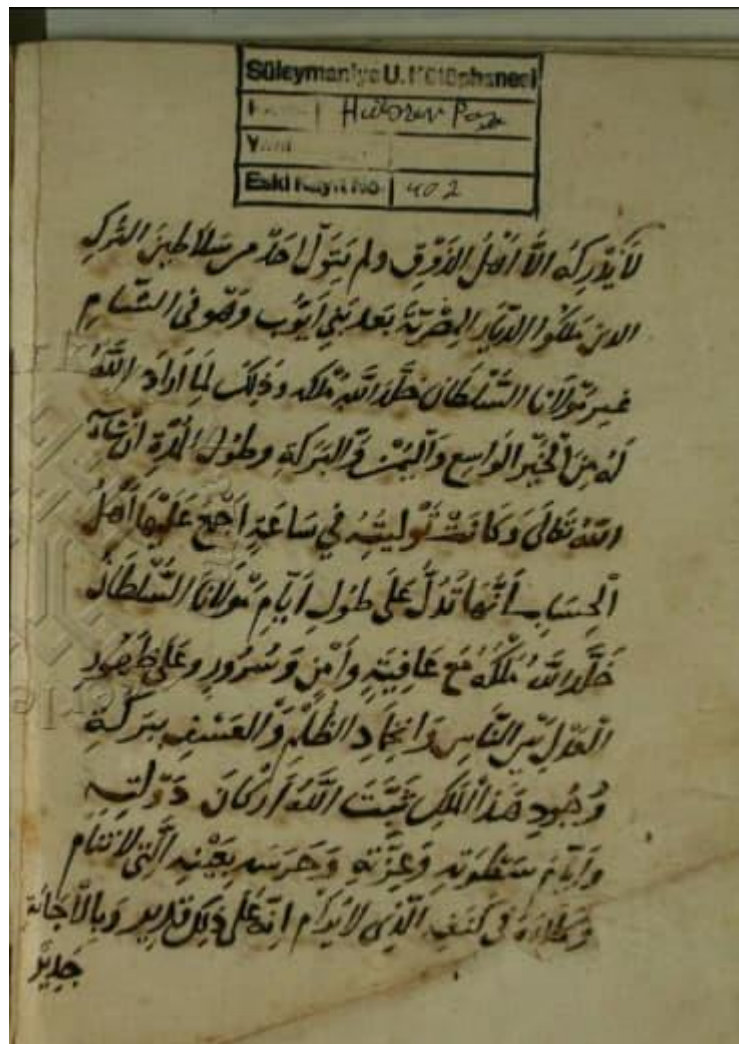 Süleymaniye U. Kütüphanesi
Hüsrev Paşa
Y
Eski Kayıt No 402
لَا يُدْرِكُهُ اِلَّا اَهْلُ الذَّوْقِ ولم يَتَوَلَّ اَحَدٌ من سَلَاطِينِ التُّركِ
الذين مَلكُوا الدِّيَارِ المِصْرِيَّةَ بَعدَ بَنِي اَيُّوب وَهُوَ فى الشَّامِ
غير مَوْلَانَا السُّلْطَان خَلَّدَ اللَّهُ مُلْكَه وَذٰلِكَ لِمَا اَرَادَ اللَّهُ
لَهُ مِنَ الْخَيْرِ الْوَاسِعِ وَالْيُمْنِ وَالْبَرَكَةِ وطُولِ الْمُدَّةِ اِنْ شَآءَ
اللَّهُ تَعَالَى وَكَانَتْ تَوْلِيَتُهُ فِي سَاعَةٍ اَجْمَعَ عَلَيْهَا اَهْلُ
الْحِسَابِ اَنَّهَا تَدُلُّ عَلَى طُولِ اَيَّامِ مَوْلَانَا السُّلْطَانُ
خَلَّدَ اللَّهُ مُلْكَهُ مَعَ عَافِيَةٍ وَاَمْنٍ وَسُرُورٍ وعَلَى ظُهُورِ
الْعَدْلِ بَيْنَ النَّاسِ وَاِخْمَادِ الظُّلْمِ وَالْعَسْفِ بِبَرَكَةِ
وُجُودِ هَذَا الْمَلِكِ ثَبَّتَ اللَّهُ اَرْكَانَ دَوْلَتِهِ
وَاَيَّامَ سَطْوَتِهِ وَعِزَّتِهِ وَحَرَسَه بِعَيْنِهِ الَّتِى لَا تَنَامُ
فى كَنَفِهِ الَّذِى لَا يُرَامُ اِنَّهُ عَلَى ذٰلِكَ قَدِيرٌ وَبِالْاِجَابَةِ
جَدِيرٌ